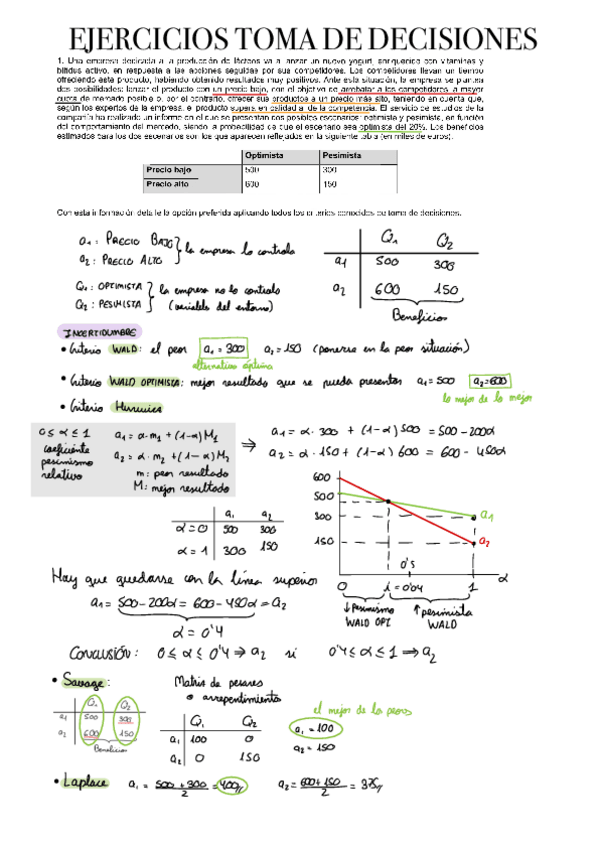 EJERCICIOS TOMA DE DECISIONES
1. Una empresa dedicada a la producción de lácteos va a lanzar un nuevo yogurt, enriquecido con vitaminas y
bífidus activo, en respuesta a las acciones seguidas por sus competidores. Los competidores llevan un tiempo
ofreciendo este producto, habiendo obtenido resultados muy positivos. Ante esta situación, la empresa se plantea
dos posibilidades: lanzar el producto con un precio bajo, con el objetivo de arrebatar a los competidores la mayor
cuota de mercado posible o, por el contrario, ofrecer sus productos a un precio más alto, teniendo en cuenta que,
según los expertos de la empresa, el producto supera en calidad al de la competencia. El servicio de estudios de la
compañía ha realizado un informe en el que se presentan dos posibles escenarios: optimista y pesimista, en función
del comportamiento del mercado, siendo la probabilidad de que el escenario sea optimista del 20%. Los beneficios
estimados para los dos escenarios son los que aparecen reflejados en la siguiente tabla (en miles de euros):
Optimista Pesimista
Precio bajo 500 300
Precio alto 600 150
Con esta información detalle la opción preferida aplicando todos los criterios conocidos de toma de decisiones.
a1: PRECIO BAJO } la empresa lo controla
a2: PRECIO ALTO
Ω1: OPTIMISTA } la empresa no lo controla
Ω2: PESIMISTA (variables del entorno)
Ω1 Ω2
a1 500 300
a2 600 150
Beneficios
INCERTIDUMBRE
• Criterio WALD: el peor a1 = 300 a2 = 150 (ponerse en la peor situación)
alternativa óptima
• Criterio WALD OPTIMISTA: mejor resultado que se pueda presentar a1 = 500 a2 = 600
lo mejor de lo mejor
• Criterio Hurwicz
0 ≤ α ≤ 1
coeficiente
pesimismo
relativo
a1 = α·m1 + (1-α)M1
a2 = α·m2 + (1-α)M2
m: peor resultado
M: mejor resultado
⇒ a1 = α·300 + (1-α)500 = 500 - 200α
a2 = α·150 + (1-α)600 = 600 - 450α
a1 a2
α=0 500 300
α=1 300 150
600
500
300 a1
150 a2
0'5
0 α = 0'04 1 α
↓pesimismo WALD OPT
↑pesimista WALD
Hay que quedarse con la línea superior
a1 = 500 - 200α = 600 - 450α = a2
α = 0'4
Conclusión: 0 ≤ α ≤ 0'4 → a2 si 0'4 ≤ α ≤ 1 → a2
• Savage: Matriz de pesares
o arrepentimiento
Ω1 Ω2
a1 500 300
a2 600 150
Beneficios
Ω1 Ω2
a1 100 0
a2 0 150
el mejor de los peores
a1 = 100
a2 = 150
• Laplace a1 = 500 + 300 / 2 = 400 a2 = 600 + 150 / 2 = 375